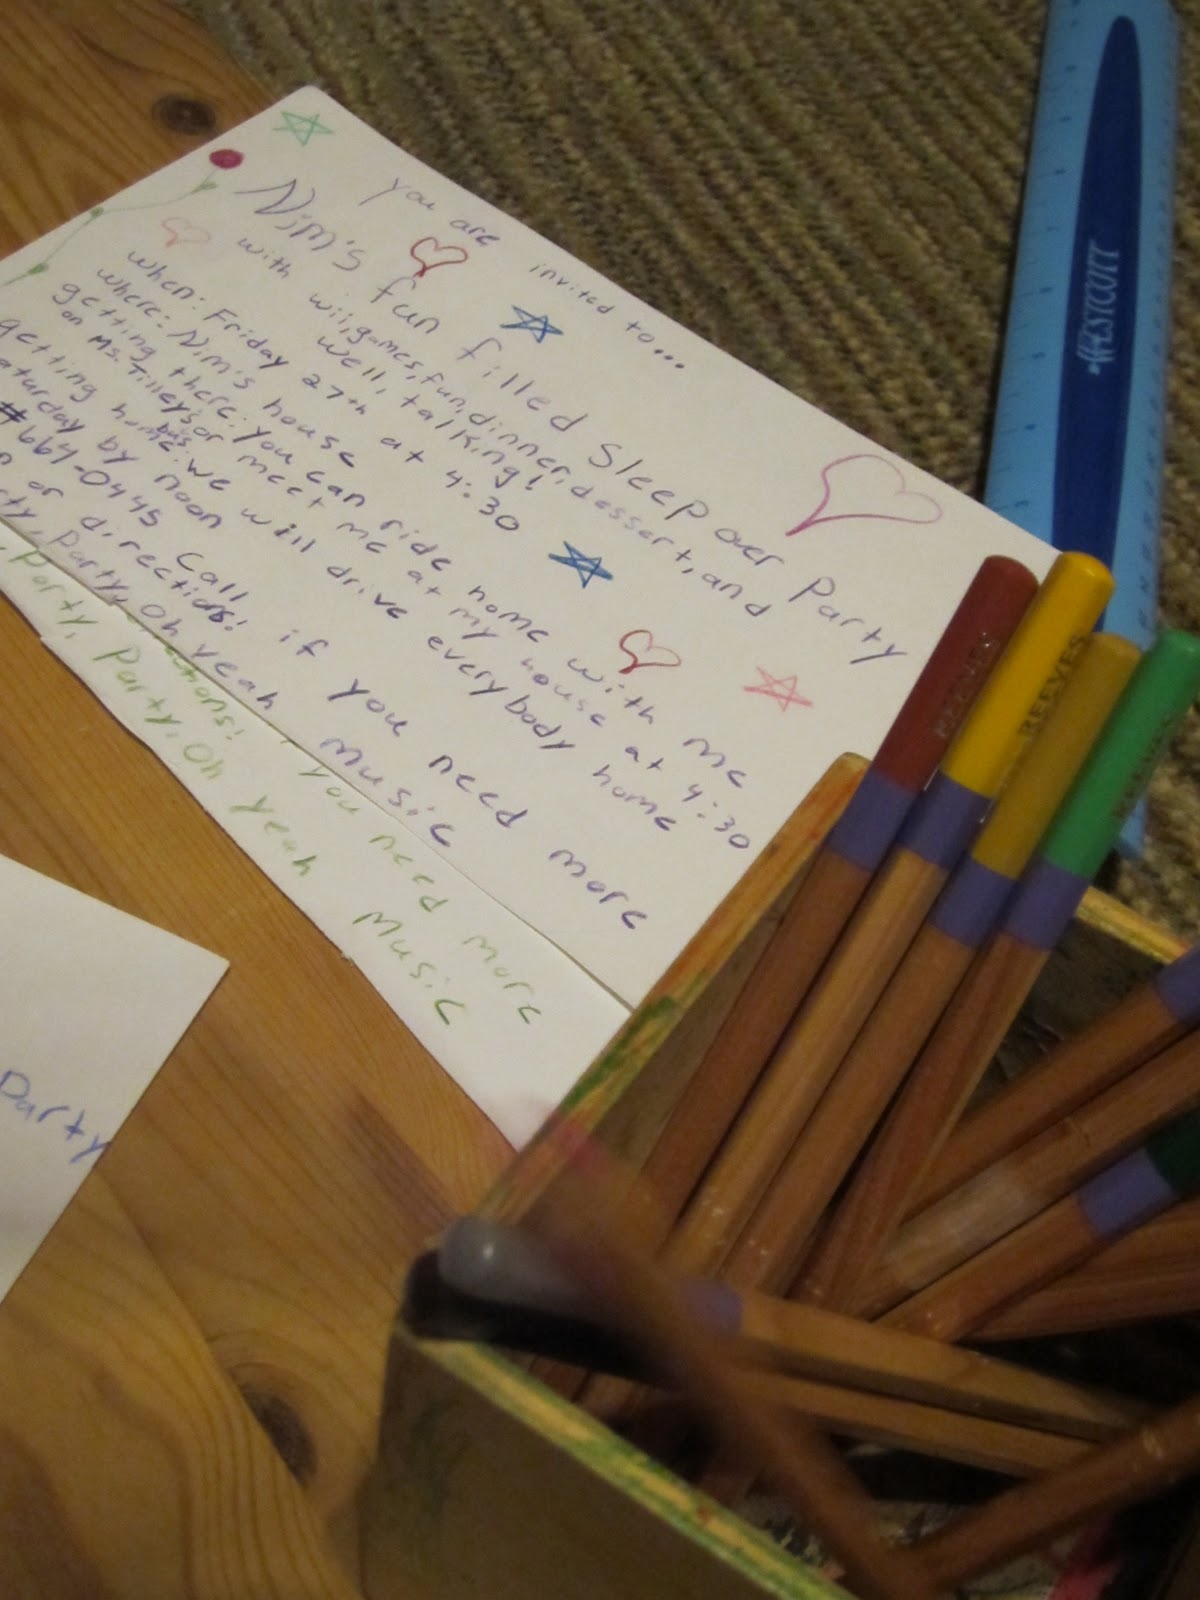 you are invited to...
Nim's fun filled Sleep over Party
with wii, games, fun, dinner, dessert, and
well, talking!
when: Friday 27th at 4:30
where: Nim's house
getting there: you can ride home with me
on Ms. Tilleys bus or meet me at my house at 4:30
getting home: we will drive everybody home
aturday by noon
#664-0445 Call if you need more
or directions!
rty, Party, Party, Oh yeah Music
ctions! you need more
Party, Party, Oh yeah Music
Party
WESTCOTT
REEVES
REEVES